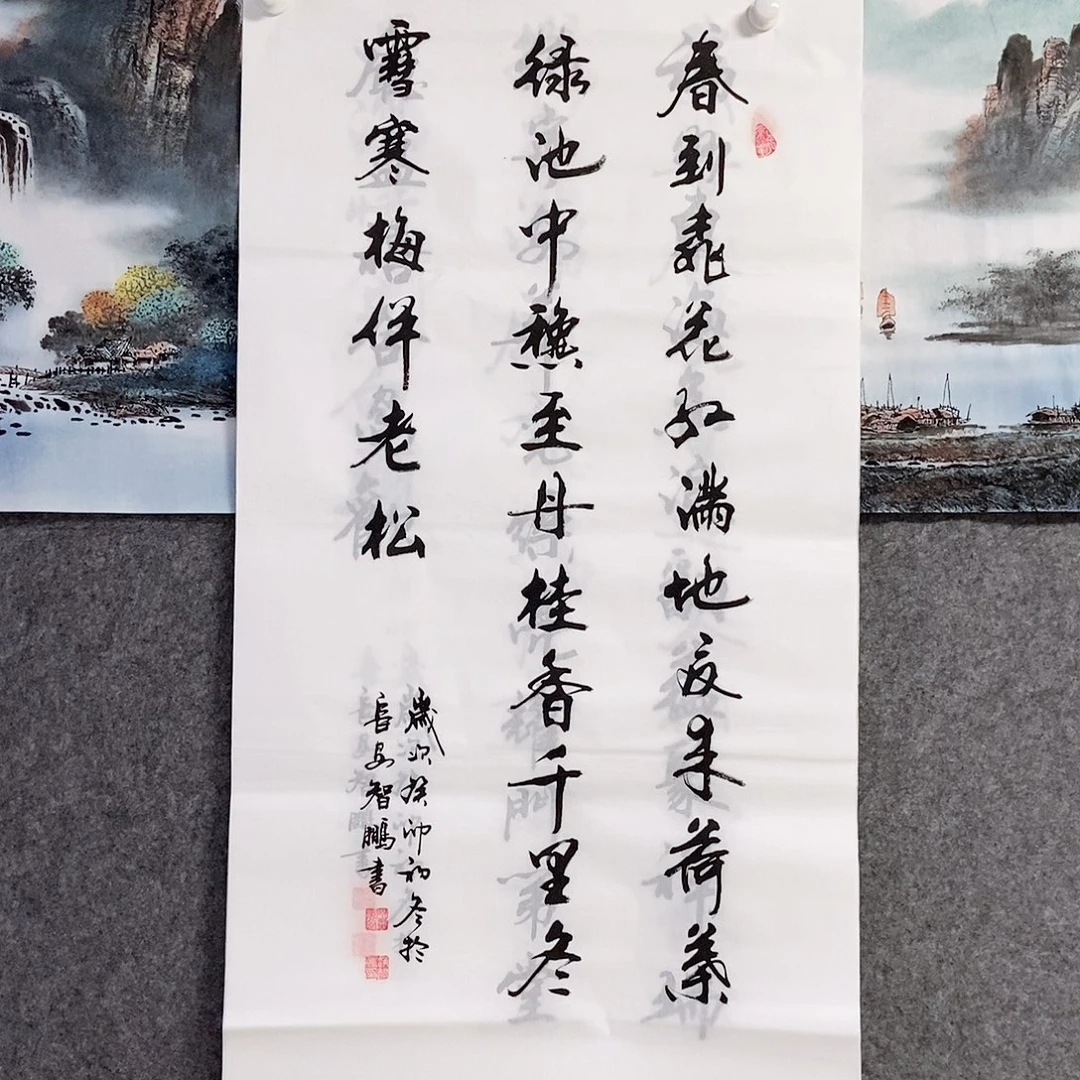 春到桃花红满地夏来荷葉
绿池中龝至丹桂香千里冬
雪寒梅伴老松
歲次癸卯初冬於
長安智鵬書